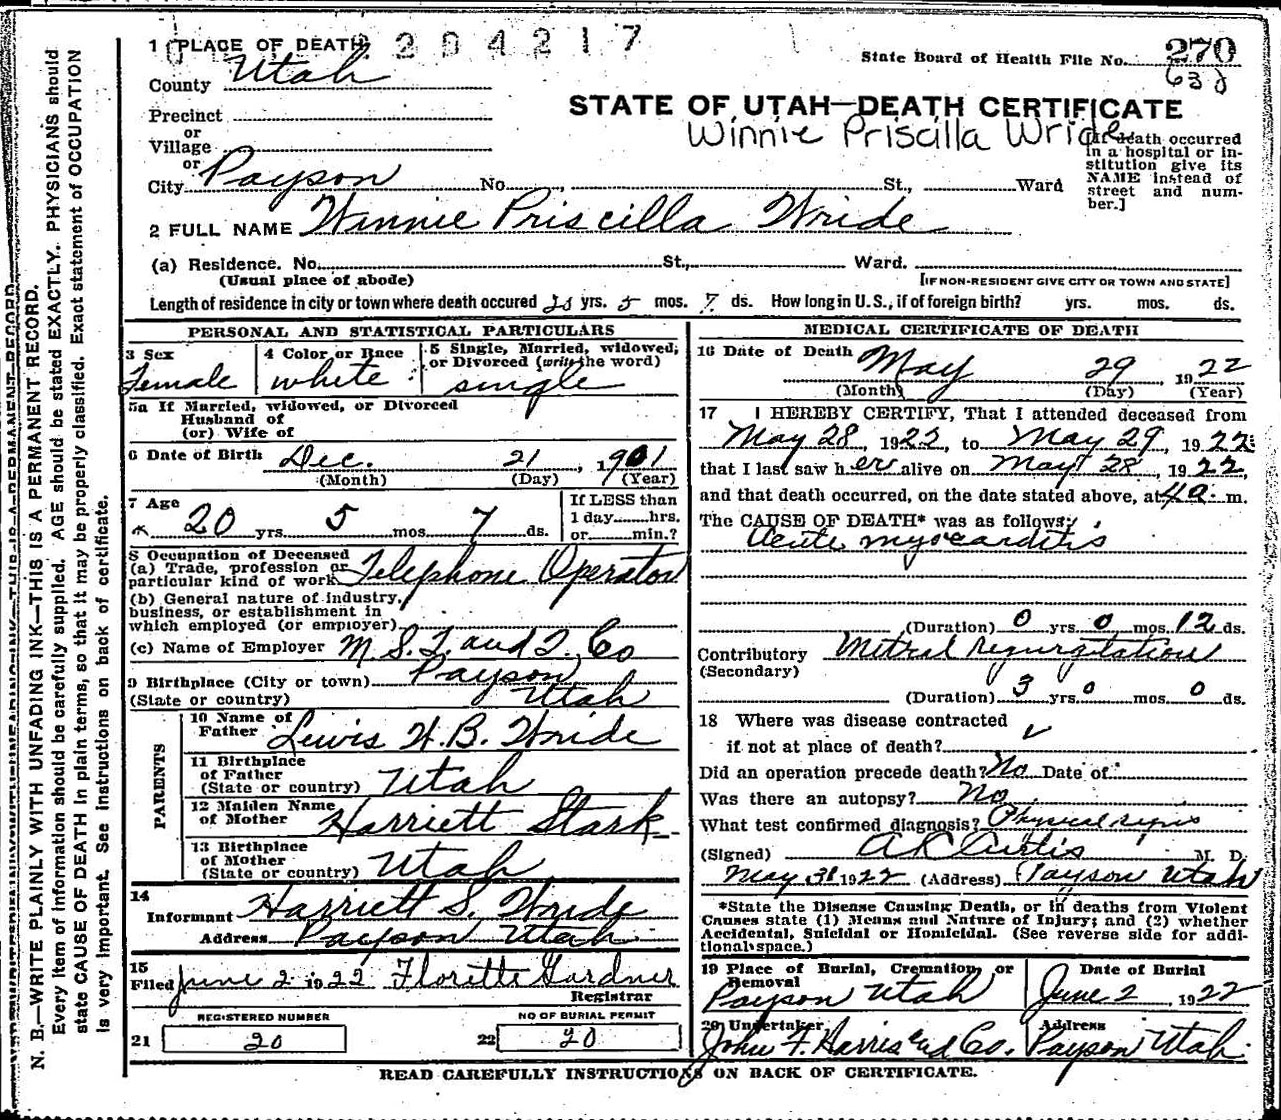 N. B.—WRITE PLAINLY WITH UNFADING INK—THIS IS A PERMANENT RECORD.
Every item of information should be carefully supplied. AGE should be stated EXACTLY. PHYSICIANS should
state CAUSE OF DEATH in plain terms, so that it may be properly classified. Exact statement of OCCUPATION
is very important. See instructions on back of certificate.
2 0 4 2 1 7
1 PLACE OF DEATH
County Utah
Precinct
or
Village
or
City Payson No. , St., Ward
State Board of Health File No. 270
STATE OF UTAH—DEATH CERTIFICATE
Winnie Priscilla Wride
[If death occurred
in a hospital or in-
stitution give its
NAME instead of
street and num-
ber.]
2 FULL NAME Winnie Priscilla Wride
(a) Residence. No. St., Ward.
(Usual place of abode) [IF NON-RESIDENT GIVE CITY OR TOWN AND STATE]
Length of residence in city or town where death occured 20 yrs. 5 mos. 7 ds. How long in U. S., if of foreign birth? yrs. mos. ds.
PERSONAL AND STATISTICAL PARTICULARS
3 Sex
Female
4 Color or Race
white
5 Single, Married, widowed,
or Divorced (write the word)
single
5a If Married, widowed, or Divorced
Husband of
(or) Wife of
6 Date of Birth Dec. 21, 1901
(Month) (Day) (Year)
7 Age
20 yrs. 5 mos. 7 ds.
If LESS than
1 day hrs.
or min.?
8 Occupation of Deceased
(a) Trade, profession or
particular kind of work Telephone Operator
(b) General nature of industry,
business, or establishment in
which employed (or employer)
(c) Name of Employer M. S. T. and T. Co
9 Birthplace (City or town) Payson
(State or country) Utah
PARENTS
10 Name of
Father Lewis W. B. Wride
11 Birthplace
of Father
(State or country) Utah
12 Maiden Name
of Mother Harriett Stark
13 Birthplace
of Mother
(State or country) Utah
14
Informant Harriett S. Wride
Address Payson Utah
15
Filed June 2 1922 Florette Gardner
Registrar
REGISTERED NUMBER
21 20
NO OF BURIAL PERMIT
22 20
MEDICAL CERTIFICATE OF DEATH
16 Date of Death May 29, 1922
(Month) (Day) (Year)
17 I HEREBY CERTIFY, That I attended deceased from
May 28, 1922, to May 29, 1922
that I last saw her alive on May 28, 1922,
and that death occurred, on the date stated above, at 4 a. m.
The CAUSE OF DEATH* was as follows:
Acute myocarditis
(Duration) 0 yrs 0 mos 12 ds.
Contributory Mitral regurgitation
(Secondary)
(Duration) 3 yrs 0 mos. 0 ds.
18 Where was disease contracted
if not at place of death?
Did an operation precede death? No Date of
Was there an autopsy? No
What test confirmed diagnosis? Physical signs
(Signed) A K Curtis M. D.
May 31 1922 (Address) Payson Utah
*State the Disease Causing Death, or in deaths from Violent
Causes state (1) Means and Nature of Injury; and (2) whether
Accidental, Suicidal or Homicidal. (See reverse side for addi-
tional space.)
19 Place of Burial, Cremation, or
Removal
Payson Utah
Date of Burial
June 2, 1922
20 Undertaker
John F. Harris and Co.
Address
Payson Utah.
READ CAREFULLY INSTRUCTIONS ON BACK OF CERTIFICATE.